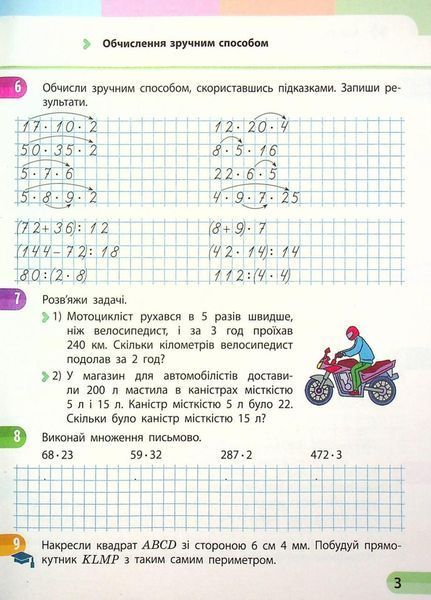 Обчислення зручним способом
6 Обчисли зручним способом, скориставшись підказками. Запиши ре-
зультати.
17·10·2 12·20·4
50·35·2 8·5·16
5·7·6 22·6·5
5·8·9·2 4·9·7·25
(72+36):12 (8+9)·7
(144-72):18 (42·14):14
80:(2·8) 112:(4·4)
7 Розв'яжи задачі.
1) Мотоцикліст рухався в 5 разів швидше,
ніж велосипедист, і за 3 год проїхав
240 км. Скільки кілометрів велосипедист
подолав за 2 год?
2) У магазин для автомобілістів достави-
ли 200 л мастила в каністрах місткістю
5 л і 15 л. Каністр місткістю 5 л було 22.
Скільки було каністр місткістю 15 л?
8 Виконай множення письмово.
68·23 59·32 287·2 472·3
9 Накресли квадрат ABCD зі стороною 6 см 4 мм. Побудуй прямо-
кутник KLMP з таким самим периметром.
3